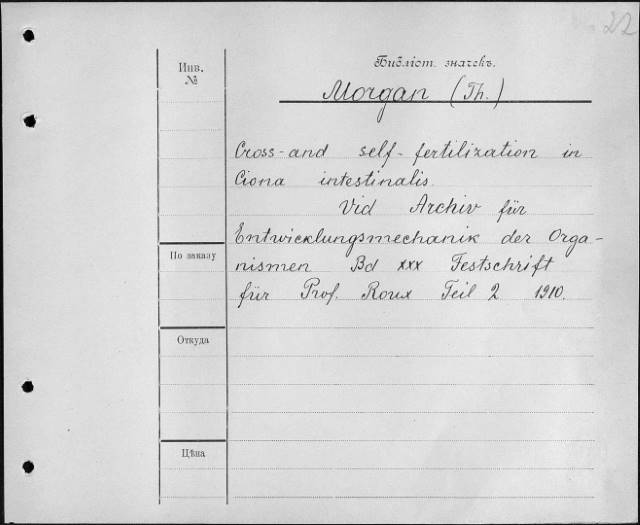 22
Инв.
№
Библіот. значекъ.
Morgan (Th.)
Cross-and self-fertilization in
Ciona intestinalis.
Vid Archiv für
Entwicklungsmechanik der Orga-
nismen Bd xxx Festschrift
für Prof. Roux Teil 2 1910.
По заказу
Откуда
Цѣна